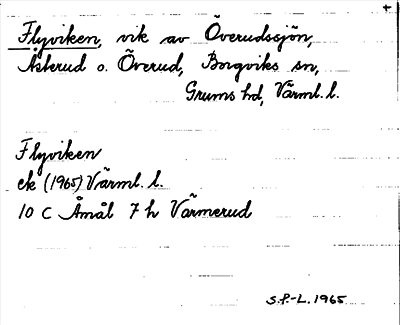 Flyviken, vik av Överudssjön,
Åsterud o. Överud, Borgviks sn,
Grums hd, Värml. l.
Flyviken
ek (1965) Värml. l.
10 C Åmål 7 h Värmerud
S.P.-L. 1965